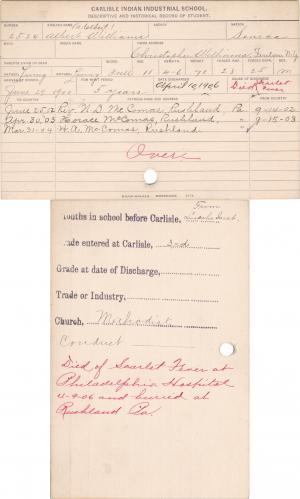 CARLISLE INDIAN INDUSTRIAL SCHOOL.
DESCRIPTIVE AND HISTORICAL RECORD OF STUDENT.
NUMBER ENGLISH NAME AGENCY NATION
2534 Albert Williams Seneca
INDIAN NAME HOME ADDRESS
Christopher Williams
Living Living Full 11 4-6 70 28 2.5 M
June 25 1900 5 years April 10, 1906 Died Scarlet Fever
June 25 02 N.D. McComas, Rushland Pa 9-14-02
Apr. 30, 03 Horace McComas, Rushland, " 9-15-03
Mar 31-04 W.A. McComas, Rushland
Over
From
Months in school before Carlisle, Lincoln Inst.
Grade entered at Carlisle, 3rd
Grade at date of Discharge,
Trade or Industry,
Church, Methodist
Conduct
Died of Scarlet Fever at
Philadelphia Hospital
4-9-06 and buried at
Rushland Pa.